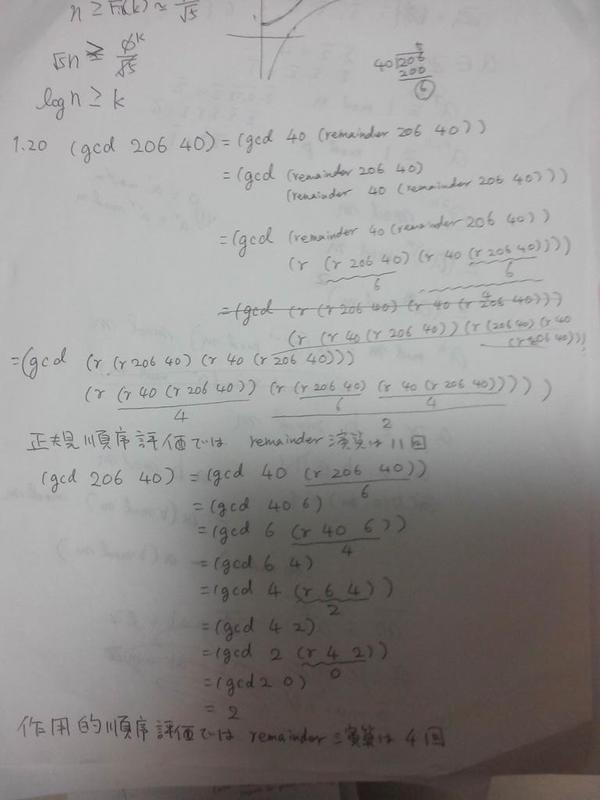 n ≥ Fib(k) ≈ /√5
√5n ≥ φ^k/√5
log n ≥ k
5
40)206
200
6
1.20 (gcd 206 40) = (gcd 40 (remainder 206 40))
= (gcd (remainder 206 40)
(remainder 40 (remainder 206 40)))
= (gcd (remainder 40 (remainder 206 40))
(r (r 206 40) (r 40 (r 206 40))))
6 6
4
= (gcd (r (r 206 40) (r 40 (r 206 40)))
(r (r 40 (r 206 40)) (r (206 40) (r 40
(r 206 40)))
= (gcd (r (r 206 40) (r 40 (r 206 40)))
(r (r 40 (r 206 40)) (r (r 206 40) (r 40 (r 206 40)))))
4 6 4
2
正規順序評価では remainder 演算は 11回
(gcd 206 40) = (gcd 40 (r 206 40))
6
= (gcd 40 6)
= (gcd 6 (r 40 6))
4
= (gcd 6 4)
= (gcd 4 (r 6 4))
2
= (gcd 4 2)
= (gcd 2 (r 4 2))
0
= (gcd 2 0)
= 2
作用的順序評価では remainder 演算は 4回